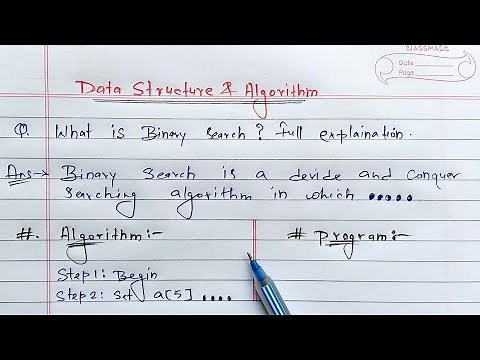 CLASSMATE
Date
Page
Data Structure & Algorithm
Q. What is Binary Search? full explaination.
Ans→ Binary search is a devide and conquer
searching algorithm in which .....
#. Algorithm:-
# Program:-
Step 1: Begin
Step 2: Set a[5] ....